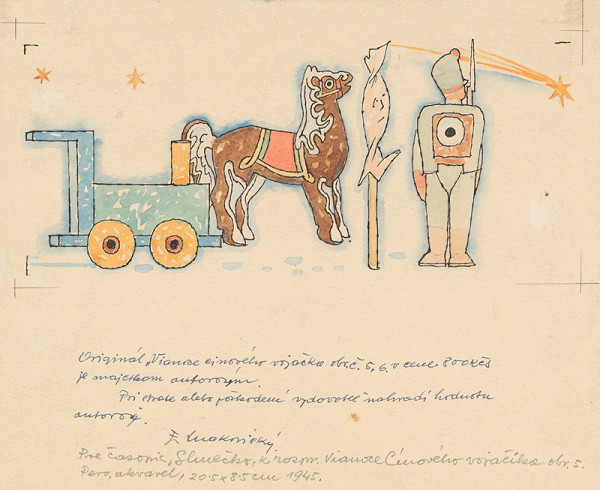 Originál „Vianoce cínového vojačka obr.č. 5, 6. v cene 800 Kčs
je majetkom autorovým.
Pri strate alebo poškodení vydavateľ nahradí hodnotu
autorovi.
Pre časopis „Slniečko„ k rozpr. Vianoce Cínového vojačika obr. 5.
Pero, akvarel, 205 x 85 cm 1945.